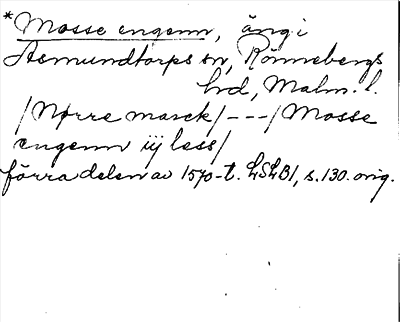 * Mosse engenn, äng i
Asmundtorps sn, Rönnebergs
hrd, Malm. l.
/Nørre marck/---/Mosse
engenn iij less/
förra delen av 1570-t. LSLB1, s. 130. orig.